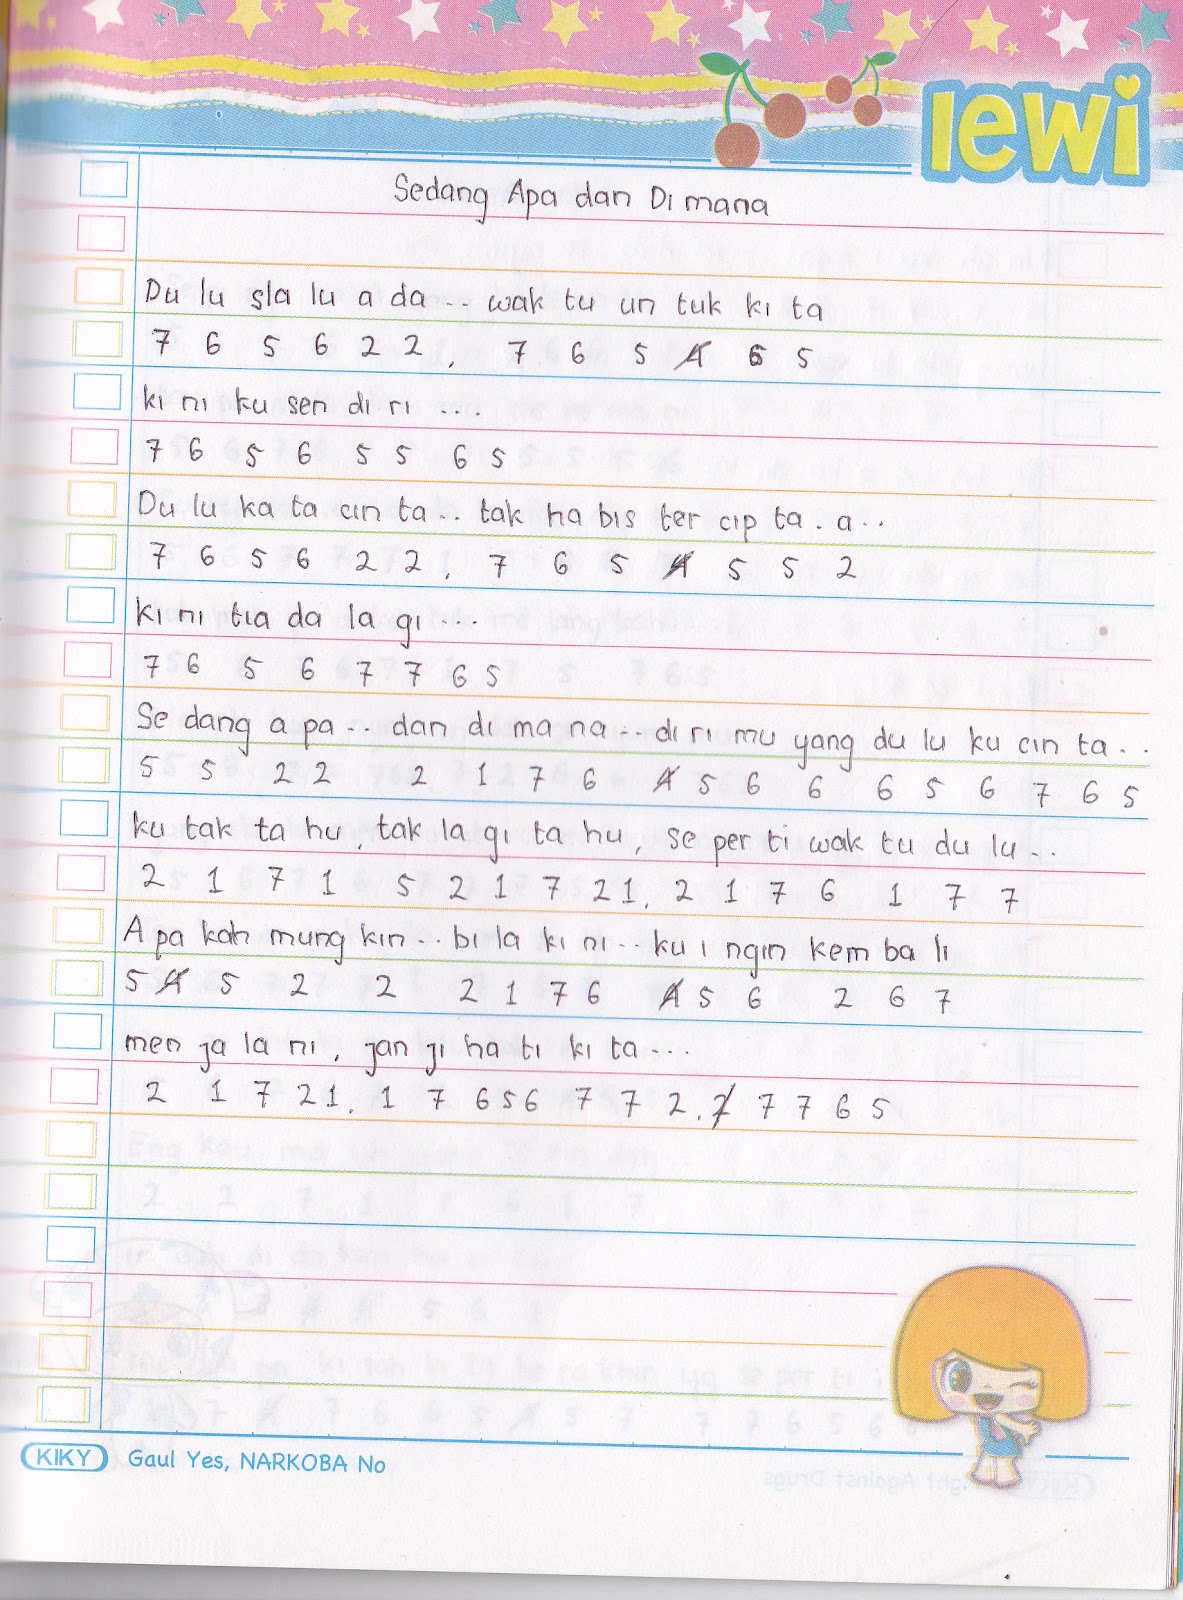 lewi
Sedang Apa dan Di mana
Du lu sla lu a da .. wak tu un tuk ki ta
7 6 5 6 2 2 . 7 6 5 4̸ 6 5
ki ni ku sen di ri ...
7 6 5 6 5 5 6 5
Du lu ka ta cin ta .. tak ha bis ter cip ta . a ..
7 6 5 6 2 2 . 7 6 5 4̸ 5 5 2
ki ni tia da la gi ...
7 6 5 6 7 7 6 5
Se dang a pa .. dan di ma na .. di ri mu yang du lu ku cin ta ..
5 5 2 2 2 1 7 6 4̸ 5 6 6 6 5 6 7 6 5
ku tak ta hu , tak la gi ta hu , se per ti wak tu du lu ..
2 1 7 1 5 2 1 7 2 1 . 2 1 7 6 1 7 7
A pa kah mung kin .. bi la ki ni .. ku i ngin kem ba li
5 4̸ 5 2 2 2 1 7 6 4̸ 5 6 2 6 7
men ja la ni , jan ji ha ti ki ta ...
2 1 7 2 1 . 1 7 6 5 6 7 7 2 . 2̸ 7 7 6 5
KIKY Gaul Yes, NARKOBA No